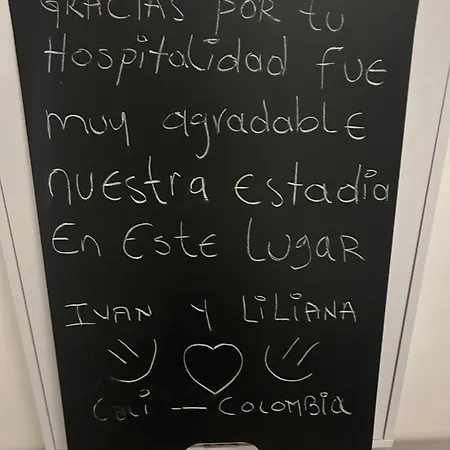 GRACIAS POR tu
Hospitalidad fuE
muy agradablE
nuEstra Estadia
En EstE lugar
IVAN Y LiLiANA
Cali — COLOMBiA